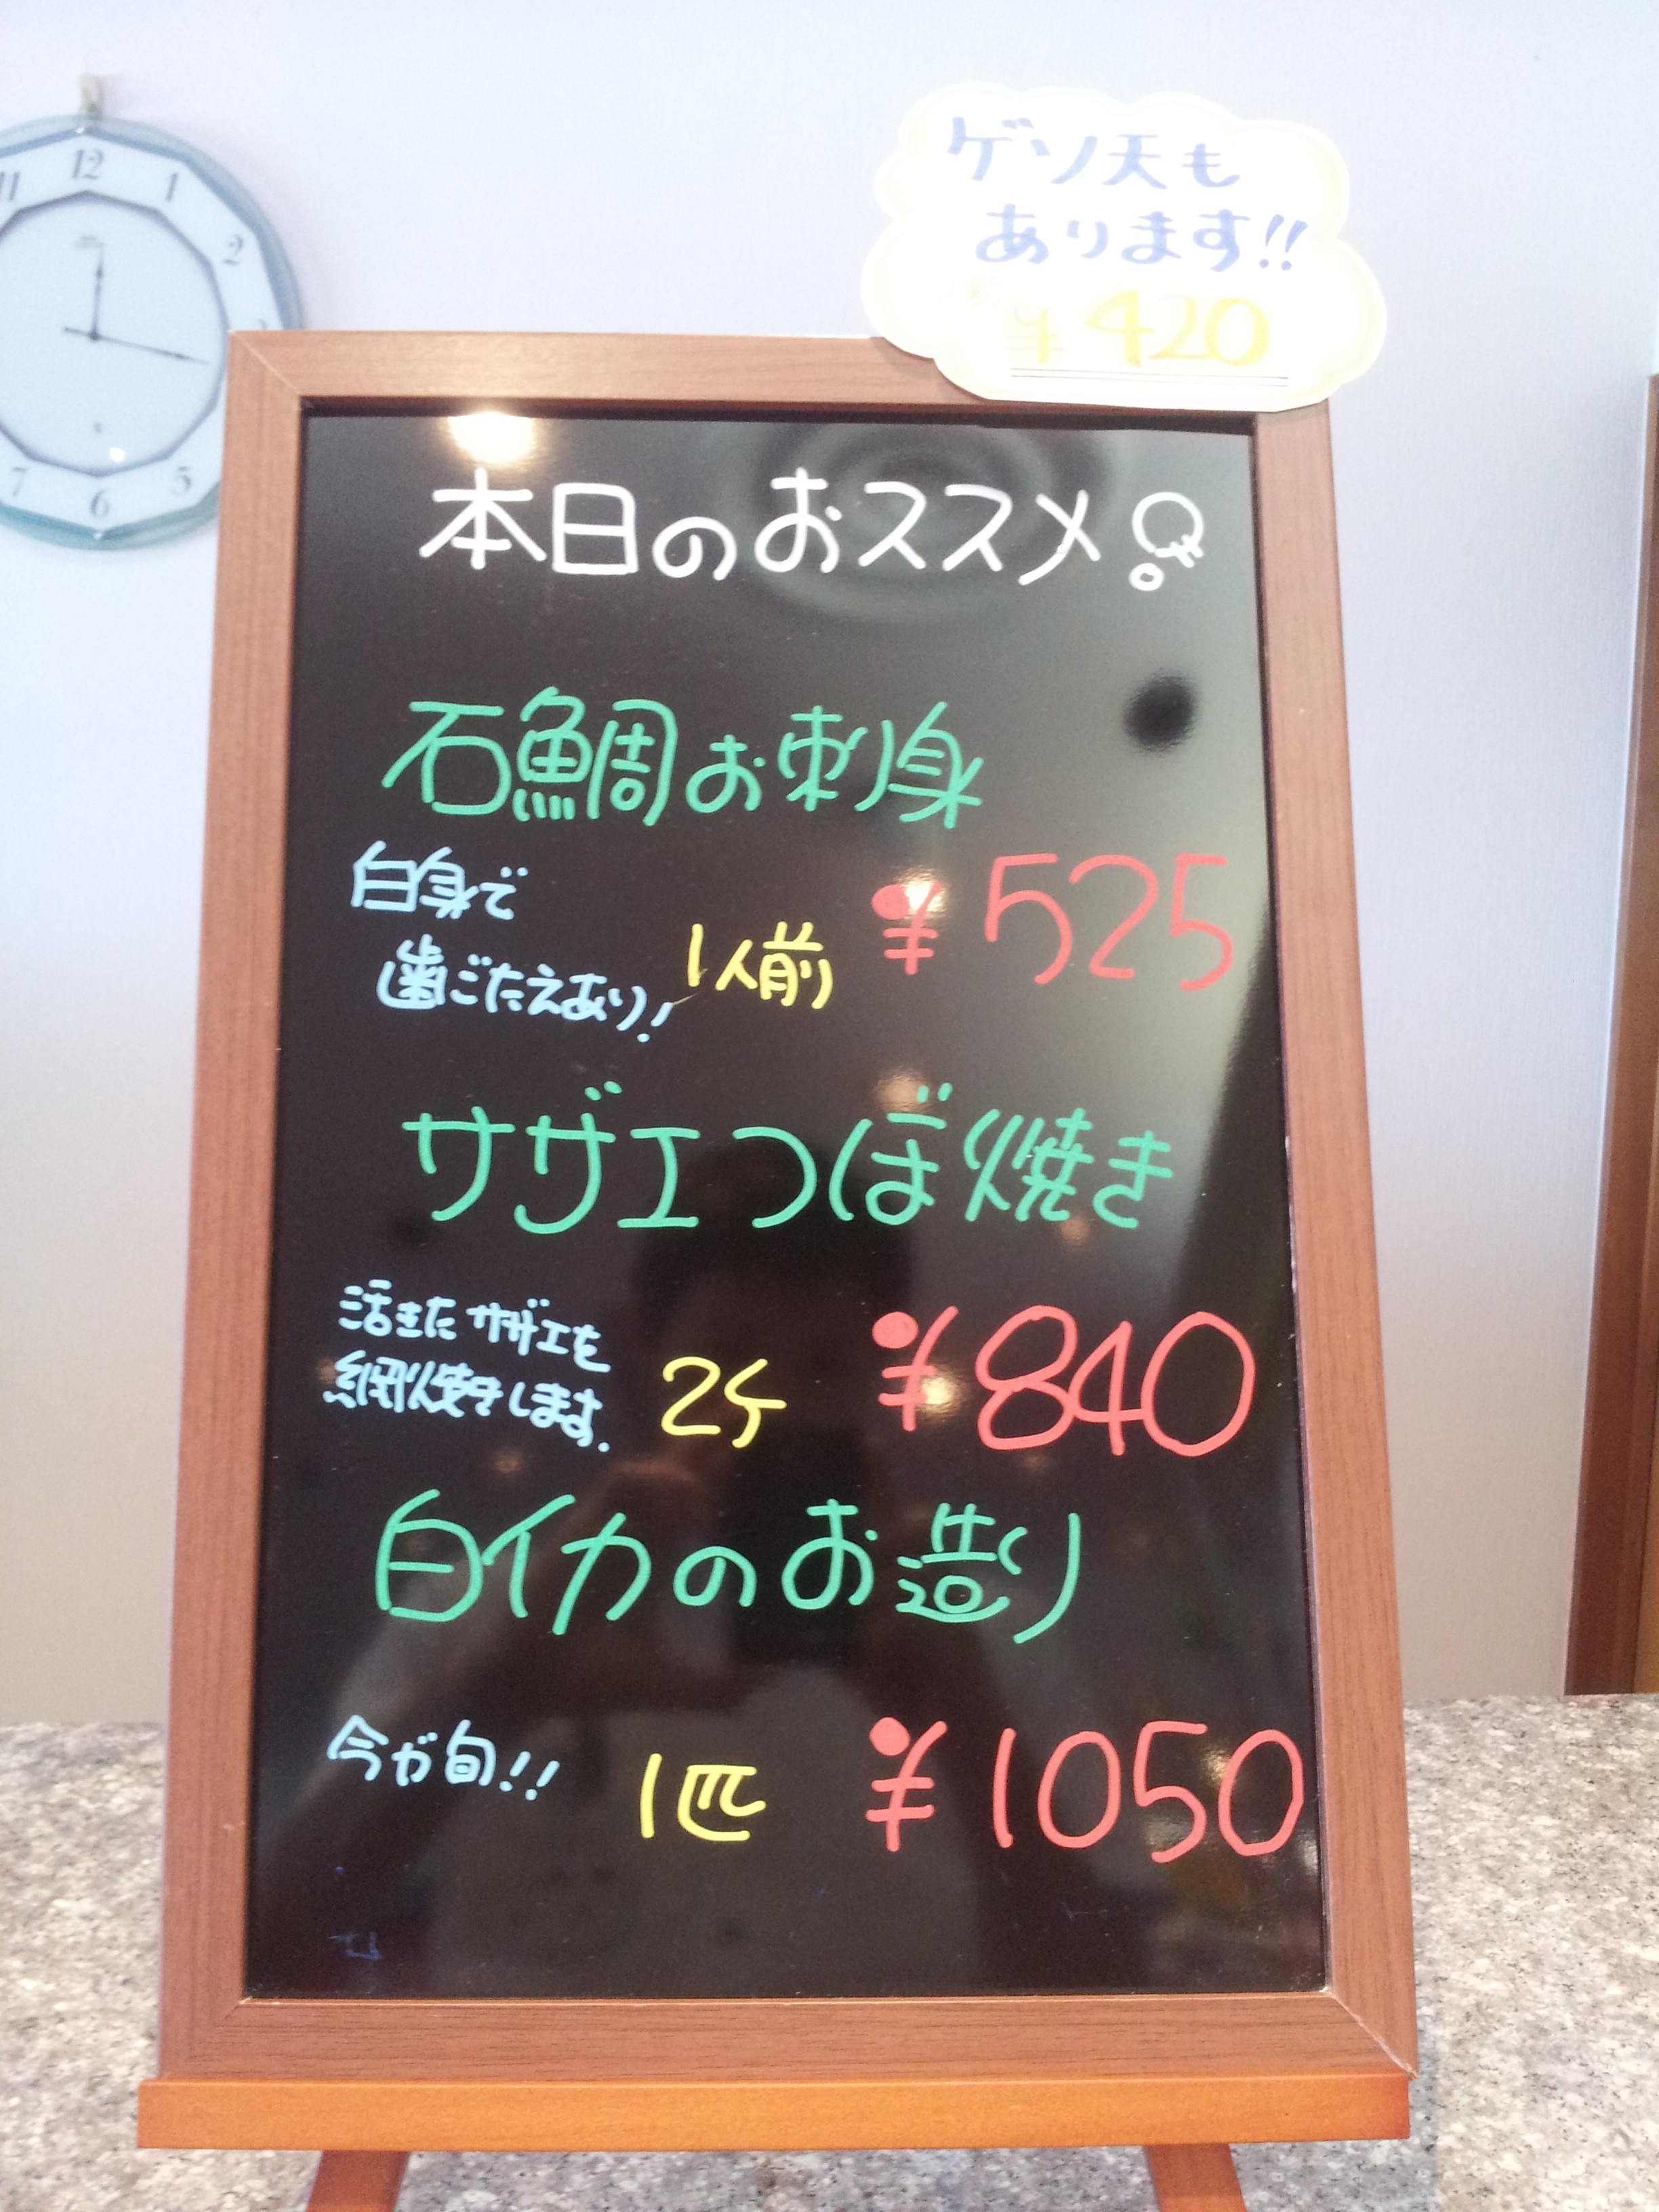 12
11
1
2
7
6
5
ゲソ天も
あります!!
¥420
本日のおススメ!
石鯛お刺身
白身で
歯ごたえあり!
1人前
¥525
サザエつぼ焼き
活きたサザエを
網焼きします.
2ケ
¥840
白イカのお造り
今が旬!!
1匹
¥1050